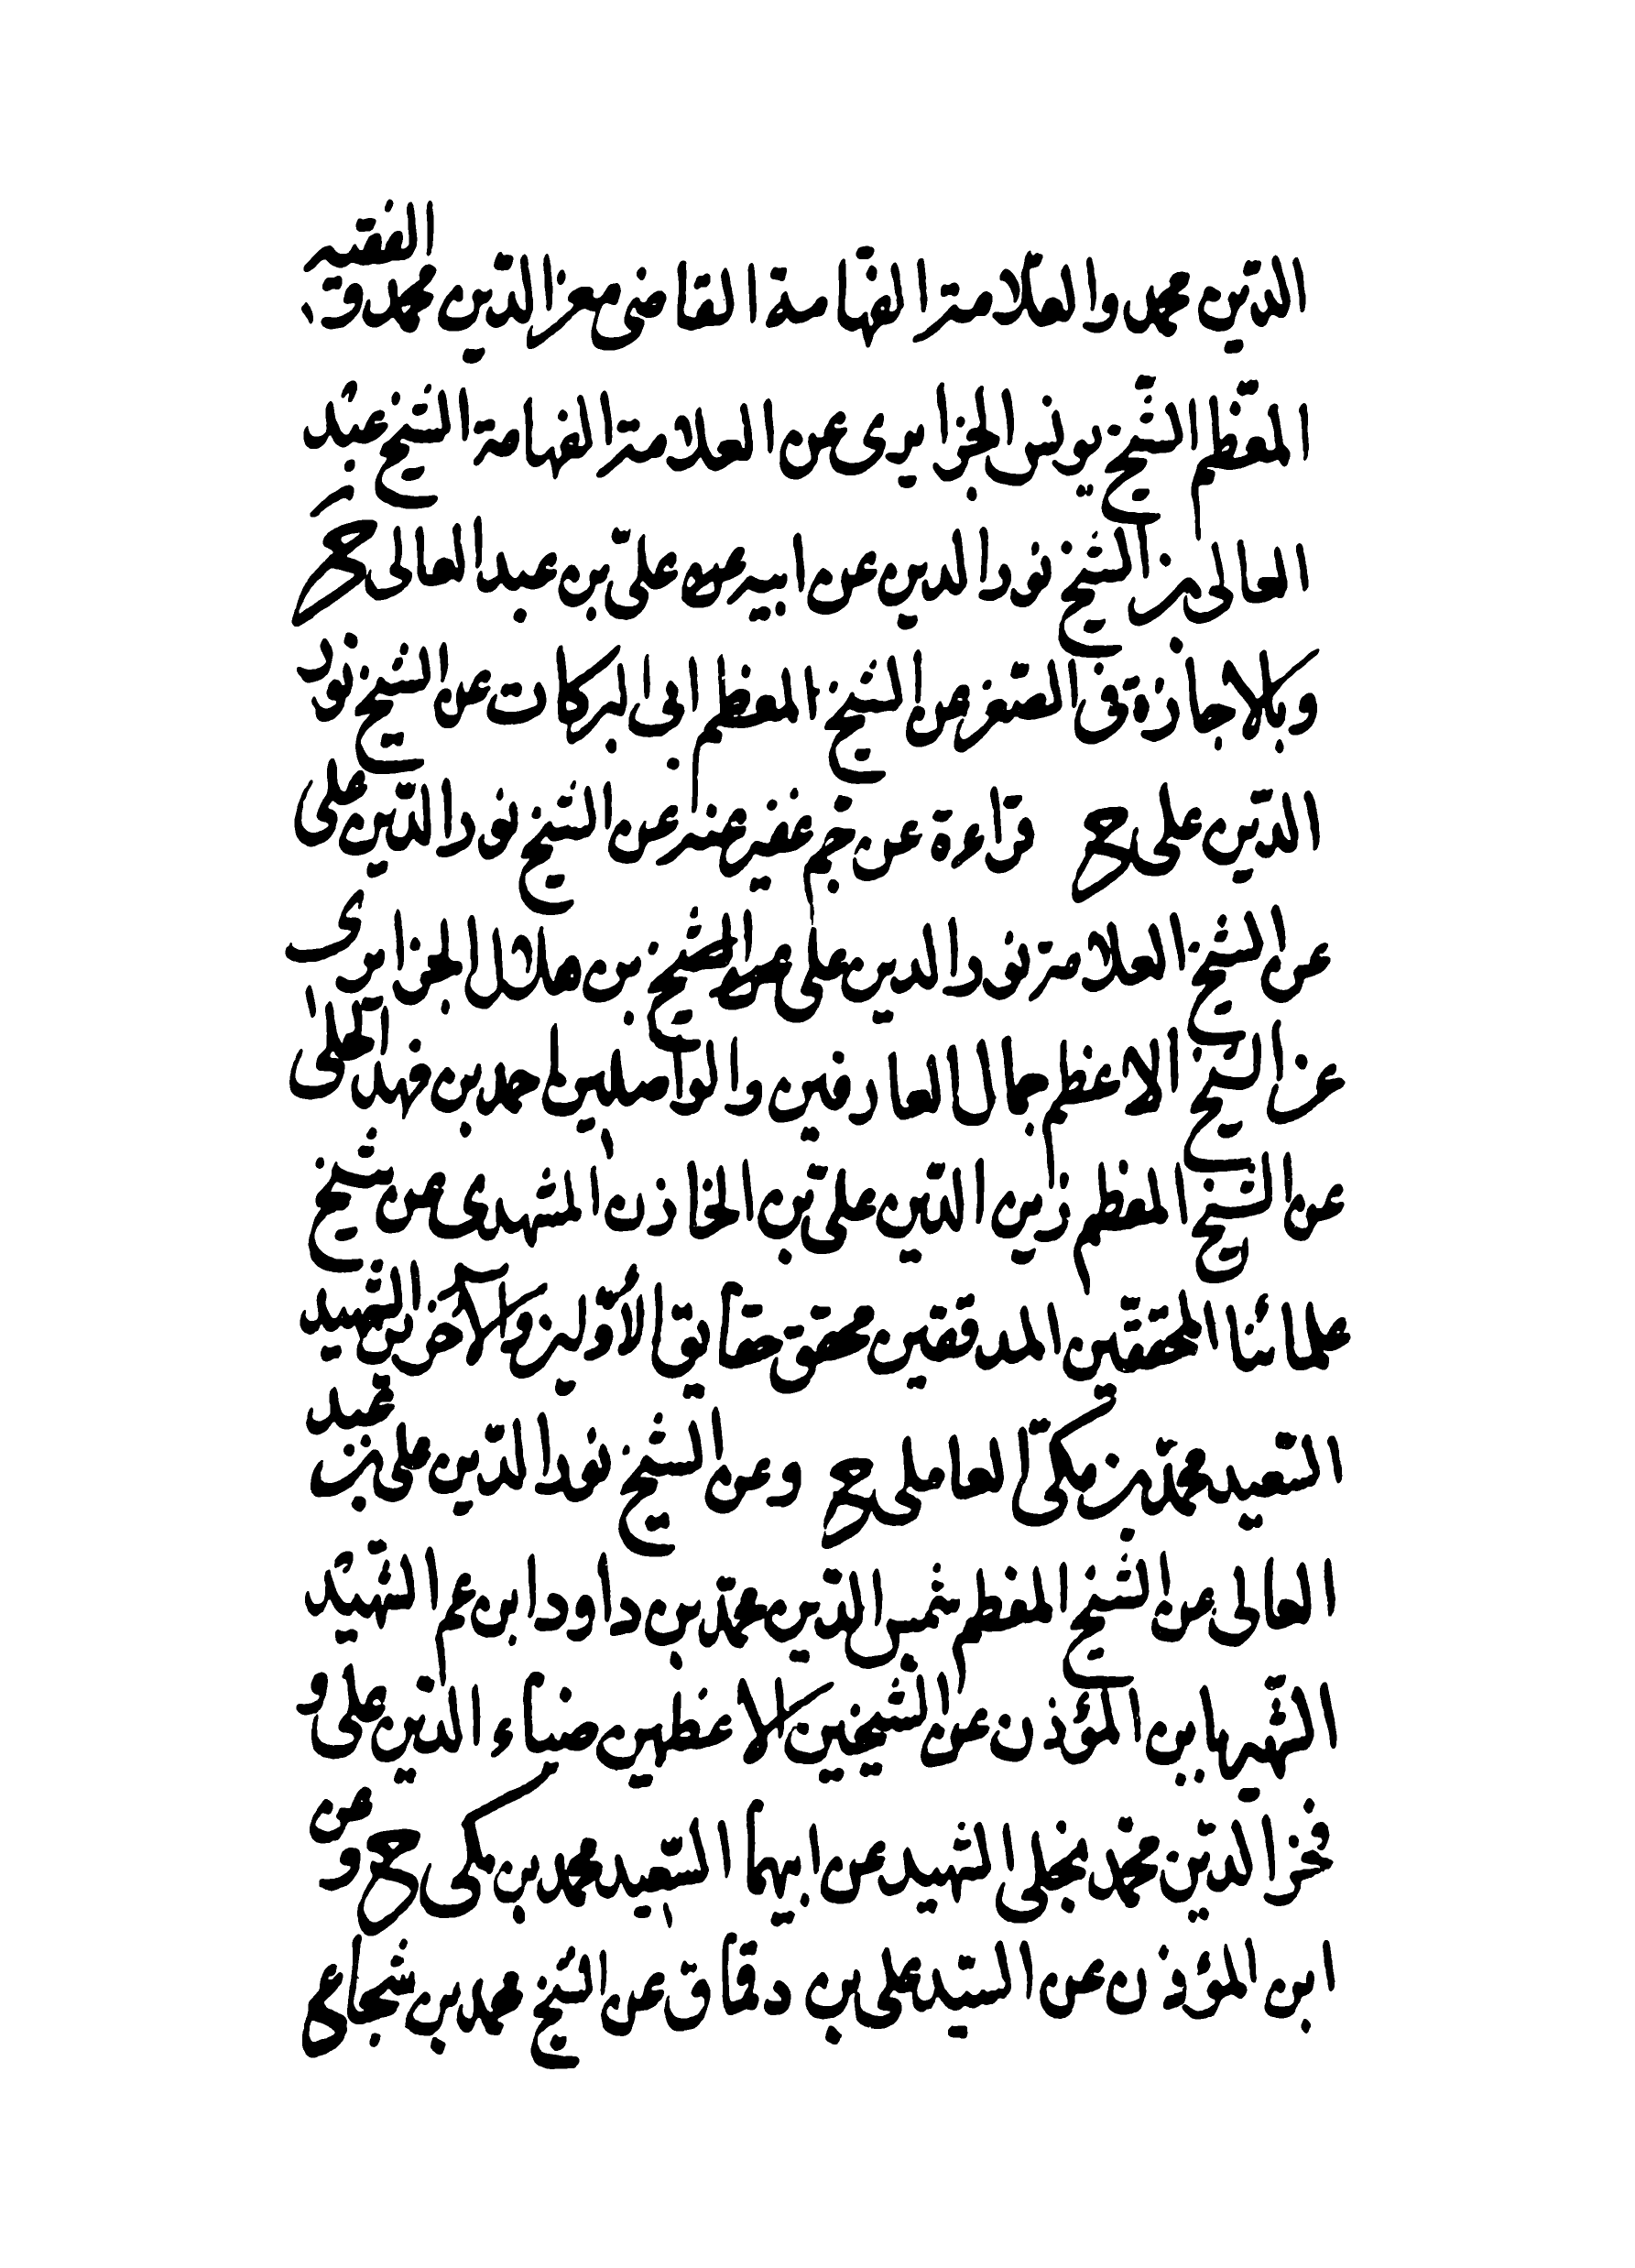 الدّين محمد والعلّامة الفهّامة القاضى معز الدّين محمد و الفقيه
المعظّم الشّيخ يونس الجزايرى عن العلامة الفهامة الشيخ عبد
العالى بن الشيخ نور الدين عن ابيه علىّ بن عبد العالى ح
وبالاجازة فى الصّغر عن الشيخ المعظم ابى البركات عن الشيخ نور
الدّين على ح قراءة عن جم غفير عنه عن الشيخ نور الدّين على
عن الشيخ العلامة نور الدين على بن هلال الجزايرى
عن الشيخ الاعظم جمال العارفين والواصلين احمد بن فهد الحلى
عن الشيخ المعظم زين الدّين علىّ بن الخازن المشهدى عن شيخ
علمائنا المحققين المدققين محقق حقايق الاوّلين والآخرين الشهيد
السّعيد محمّد بن مكىّ العاملى ح وعن الشيخ نور الدّين على بن عبد
العالى عن الشّيخ المعظم شمس الدّين محمّد بن داود ابن عم الشّهيد
الشّهير بابن المؤذن عن الشّيخين الاعظمين ضياء الدّين على و
فخر الدّين محمّد نجلى الشهيد عن ابيهما السّعيد محمد بن مكى ح و عن
ابن المؤذن عن السيّد على بن دقماق عن الشيخ محمد بن شجاع